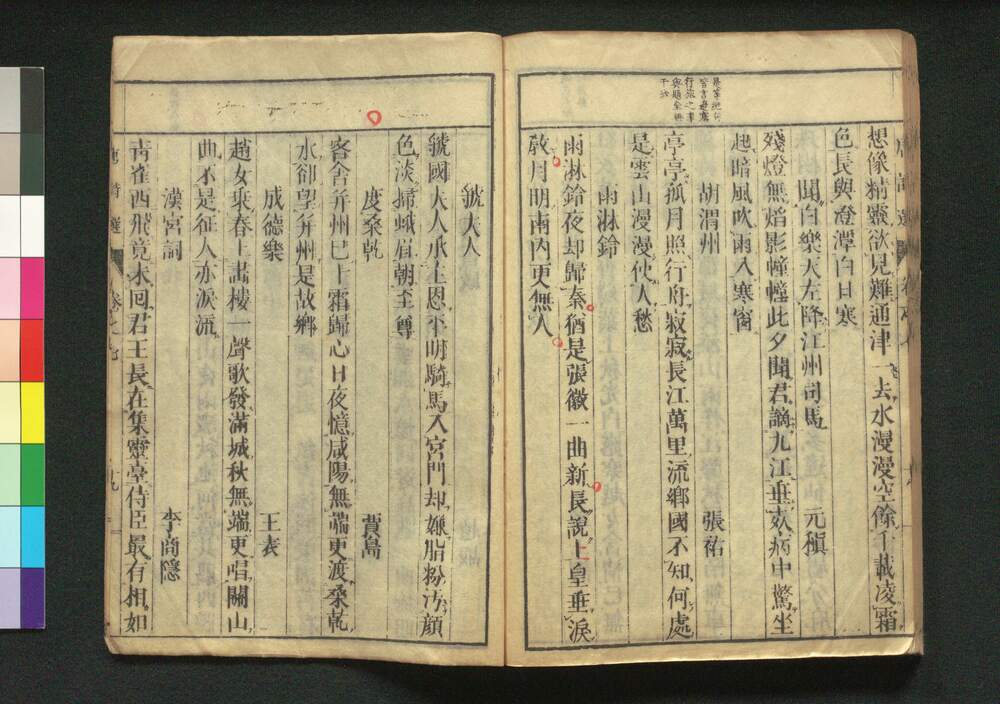 想像精靈欲見難通津一去水漫漫空餘千載凌霜
色長與澄潭白日寒
聞白樂天左降江州司馬 元稹
殘燈無焰影幢幢此夕聞君謫九江垂死病中驚坐
起暗風吹雨入寒窗
胡渭州 張祜
亭亭孤月照行舟寂寂長江萬里流鄉國不知何處
是雲山漫漫使人愁
雨淋鈴
雨淋鈴夜却歸秦猶是張徽一曲新長說上皇垂淚
教月明南內更無人
虢夫人
虢國夫人承主恩平明騎馬入宮門却嫌脂粉汚顏
色淡掃蛾眉朝至尊
度桑乾 賈島
客舍并州已十霜歸心日夜憶咸陽無端更渡桑乾
水卻望并州是故鄉
成德樂 王表
趙女乘春上畫樓一聲歌發滿城秋無端更唱關山
曲不是征人亦淚流
漢宮詞 李商隱
青雀西飛竟未回君王長在集靈臺侍臣最有相如
唐詩選 卷之七 十九